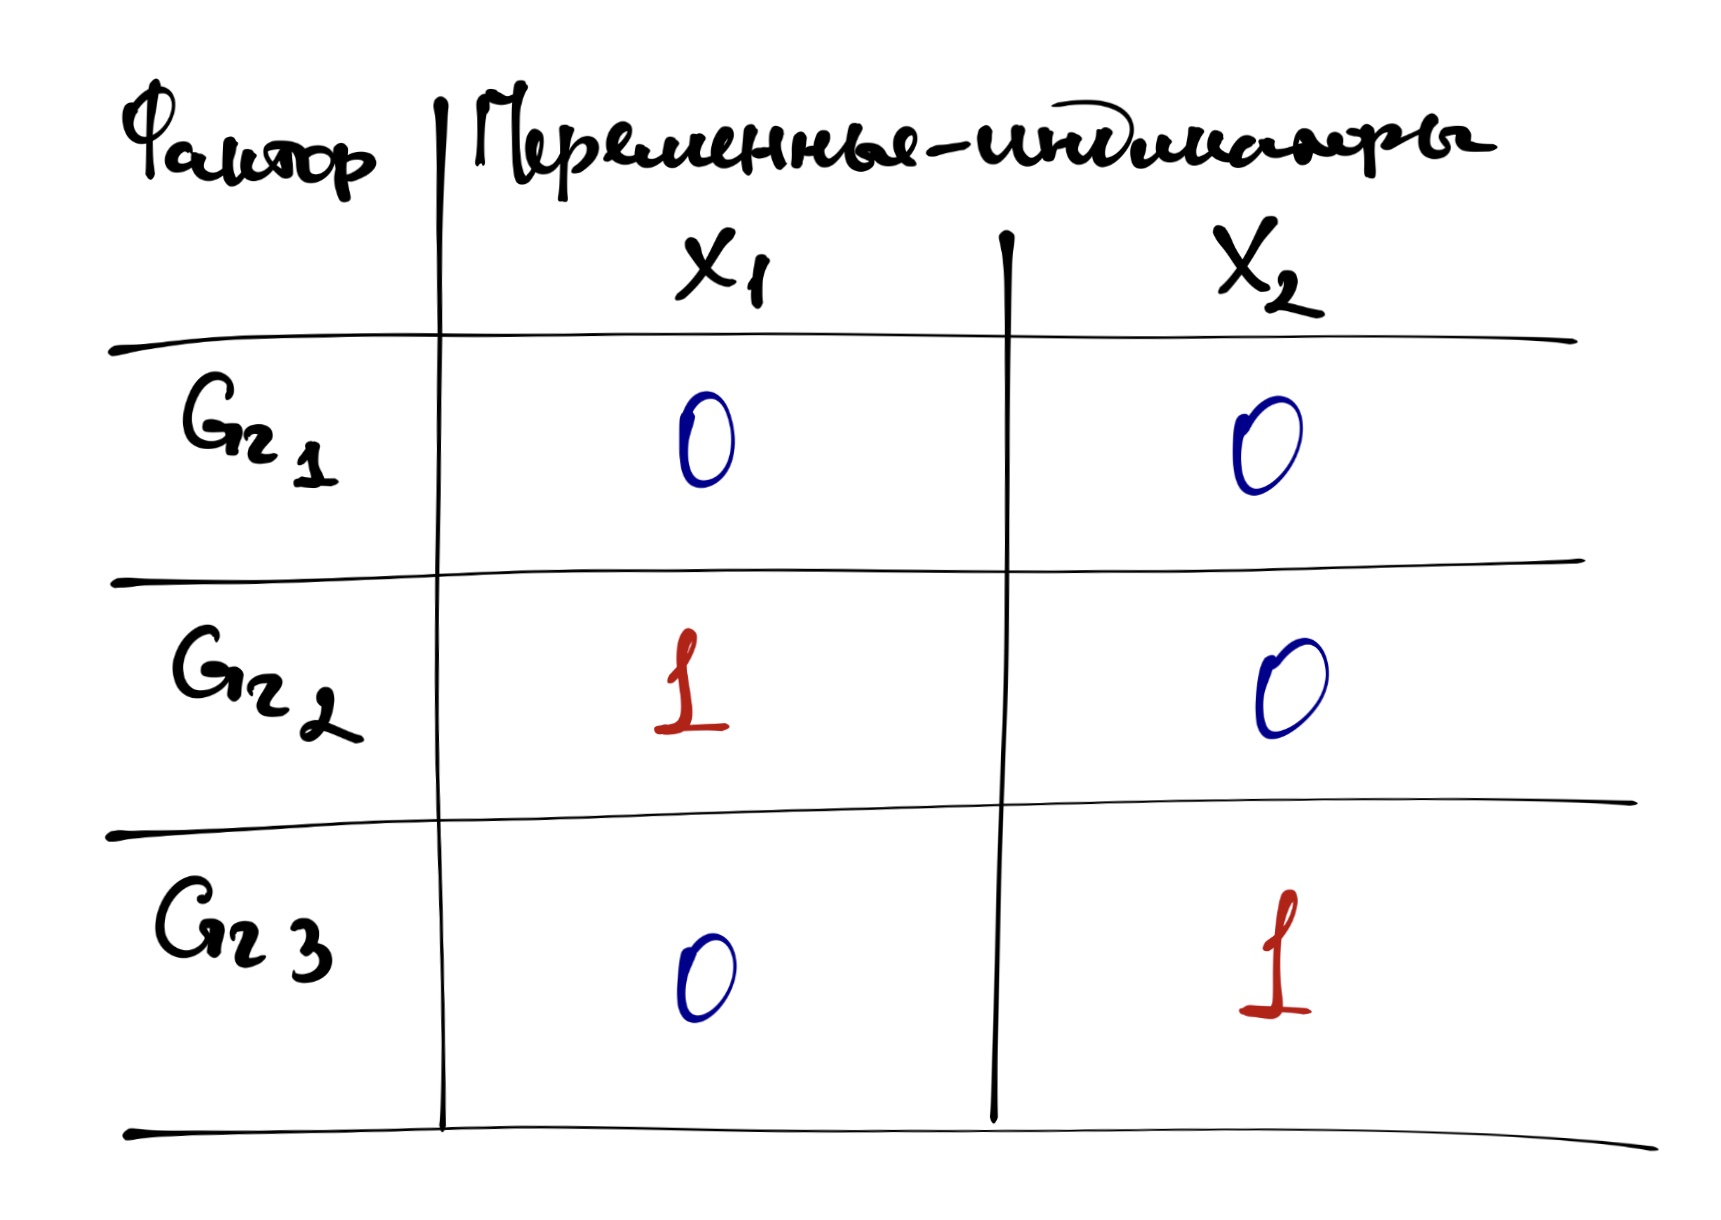 Фактор Переменные-индикаторы
X1 X2
Gr1 0 0
Gr2 1 0
Gr3 0 1